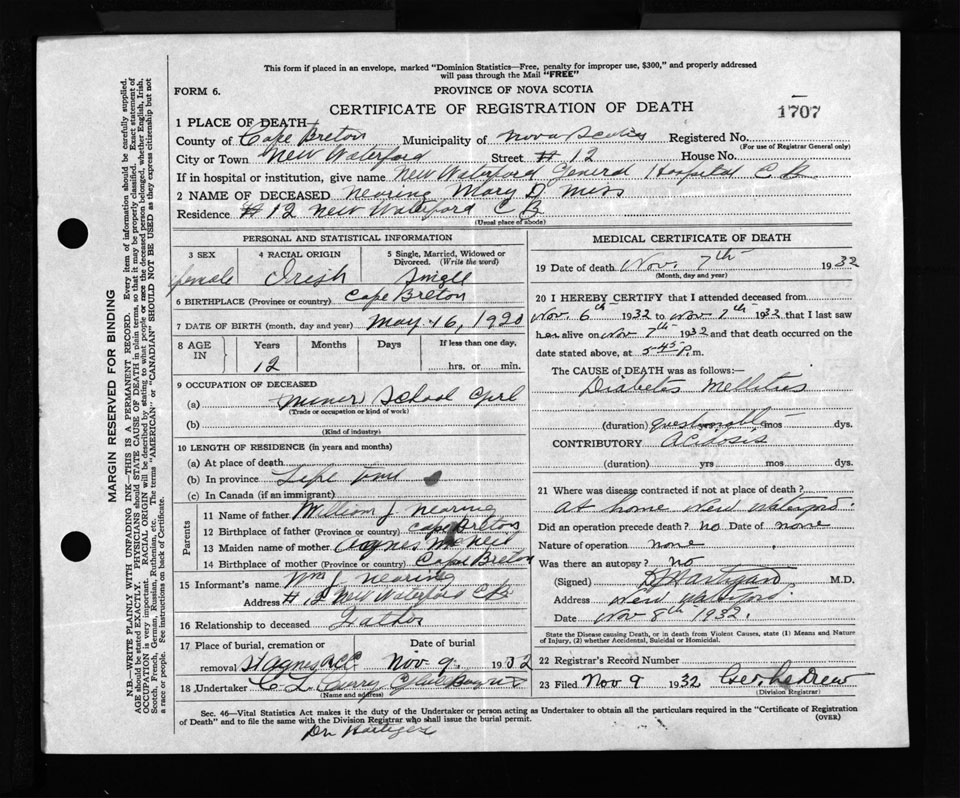 This form if placed in an envelope, marked "Dominion Statistics—Free, penalty for improper use, $300," and properly addressed
will pass through the Mail "FREE"
FORM 6.
PROVINCE OF NOVA SCOTIA
CERTIFICATE OF REGISTRATION OF DEATH
1707
1 PLACE OF DEATH
County of Cape Breton Municipality of Nova Scotia Registered No.
(For use of Registrar General only)
City or Town New Waterford Street # 12 House No.
If in hospital or institution, give name New Waterford General Hospital C B.
2 NAME OF DECEASED Nearing Mary D. Miss
Residence # 12 New Waterford C B
(Usual place of abode)
PERSONAL AND STATISTICAL INFORMATION
3 SEX 4 RACIAL ORIGIN 5 Single, Married, Widowed or Divorced. (Write the word)
female Irish Single
6 BIRTHPLACE (Province or country) Cape Breton
7 DATE OF BIRTH (month, day and year) May 16, 1920
8 AGE IN Years Months Days If less than one day,
12 hrs. or min.
9 OCCUPATION OF DECEASED
(a) School Girl
(Trade or occupation or kind of work)
(b)
(Kind of industry)
10 LENGTH OF RESIDENCE (in years and months)
(a) At place of death
(b) In province Life time
(c) In Canada (if an immigrant)
Parents
11 Name of father William J. Nearing
12 Birthplace of father (Province or country) Cape Breton
13 Maiden name of mother Agnes
14 Birthplace of mother (Province or country) Cape Breton
15 Informant's name Wm J. Nearing
Address # 12 New Waterford C.B.
16 Relationship to deceased Father
17 Place of burial, cremation or removal Date of burial
St Agnes Nov 9. 1932
18 Undertaker C L Curry Glace Bay
(Name and address)
MEDICAL CERTIFICATE OF DEATH
19 Date of death Nov. 7th 1932
(Month, day and year)
20 I HEREBY CERTIFY that I attended deceased from
Nov. 6th 1932 to Nov 7th 1932 that I last saw
her alive on Nov 7th 1932 and that death occurred on the
date stated above, at 5-45 P.m.
The CAUSE OF DEATH was as follows:—
Diabetes Mellitus
(duration) questionable mos dys.
CONTRIBUTORY Acidosis
(duration) yrs mos dys.
21 Where was disease contracted if not at place of death?
At home New Waterford.
Did an operation precede death? no Date of none
Nature of operation none
Was there an autopsy? no
(Signed) Hartigan M.D.
Address New Waterford.
Date Nov 8th 1932.
State the Disease causing Death, or in death from Violent Causes, state (1) Means and Nature of Injury, (2) whether Accidental, Suicidal or Homicidal.
22 Registrar's Record Number
23 Filed Nov 9 1932 Drew
(Division Registrar)
Sec. 46—Vital Statistics Act makes it the duty of the Undertaker or person acting as Undertaker to obtain all the particulars required in the "Certificate of Registration
of Death" and to file the same with the Division Registrar who shall issue the burial permit. (OVER)
Dr Hartigan
MARGIN RESERVED FOR BINDING
N.B.—WRITE PLAINLY WITH UNFADING INK—THIS IS A PERMANENT RECORD. Every item of information should be carefully supplied.
AGE should be stated EXACTLY. PHYSICIANS should STATE CAUSE OF DEATH in plain terms, so that it may be properly classified. Exact statement of
OCCUPATION is very important. RACIAL ORIGIN will be described by stating to what people or race the deceased person belonged, whether English, Irish,
Scotch, French, German, Russian, Ruthenian, etc. The terms "AMERICAN" or "CANADIAN" SHOULD NOT BE USED as they express citizenship but not
a race or people. See instructions on back of Certificate.